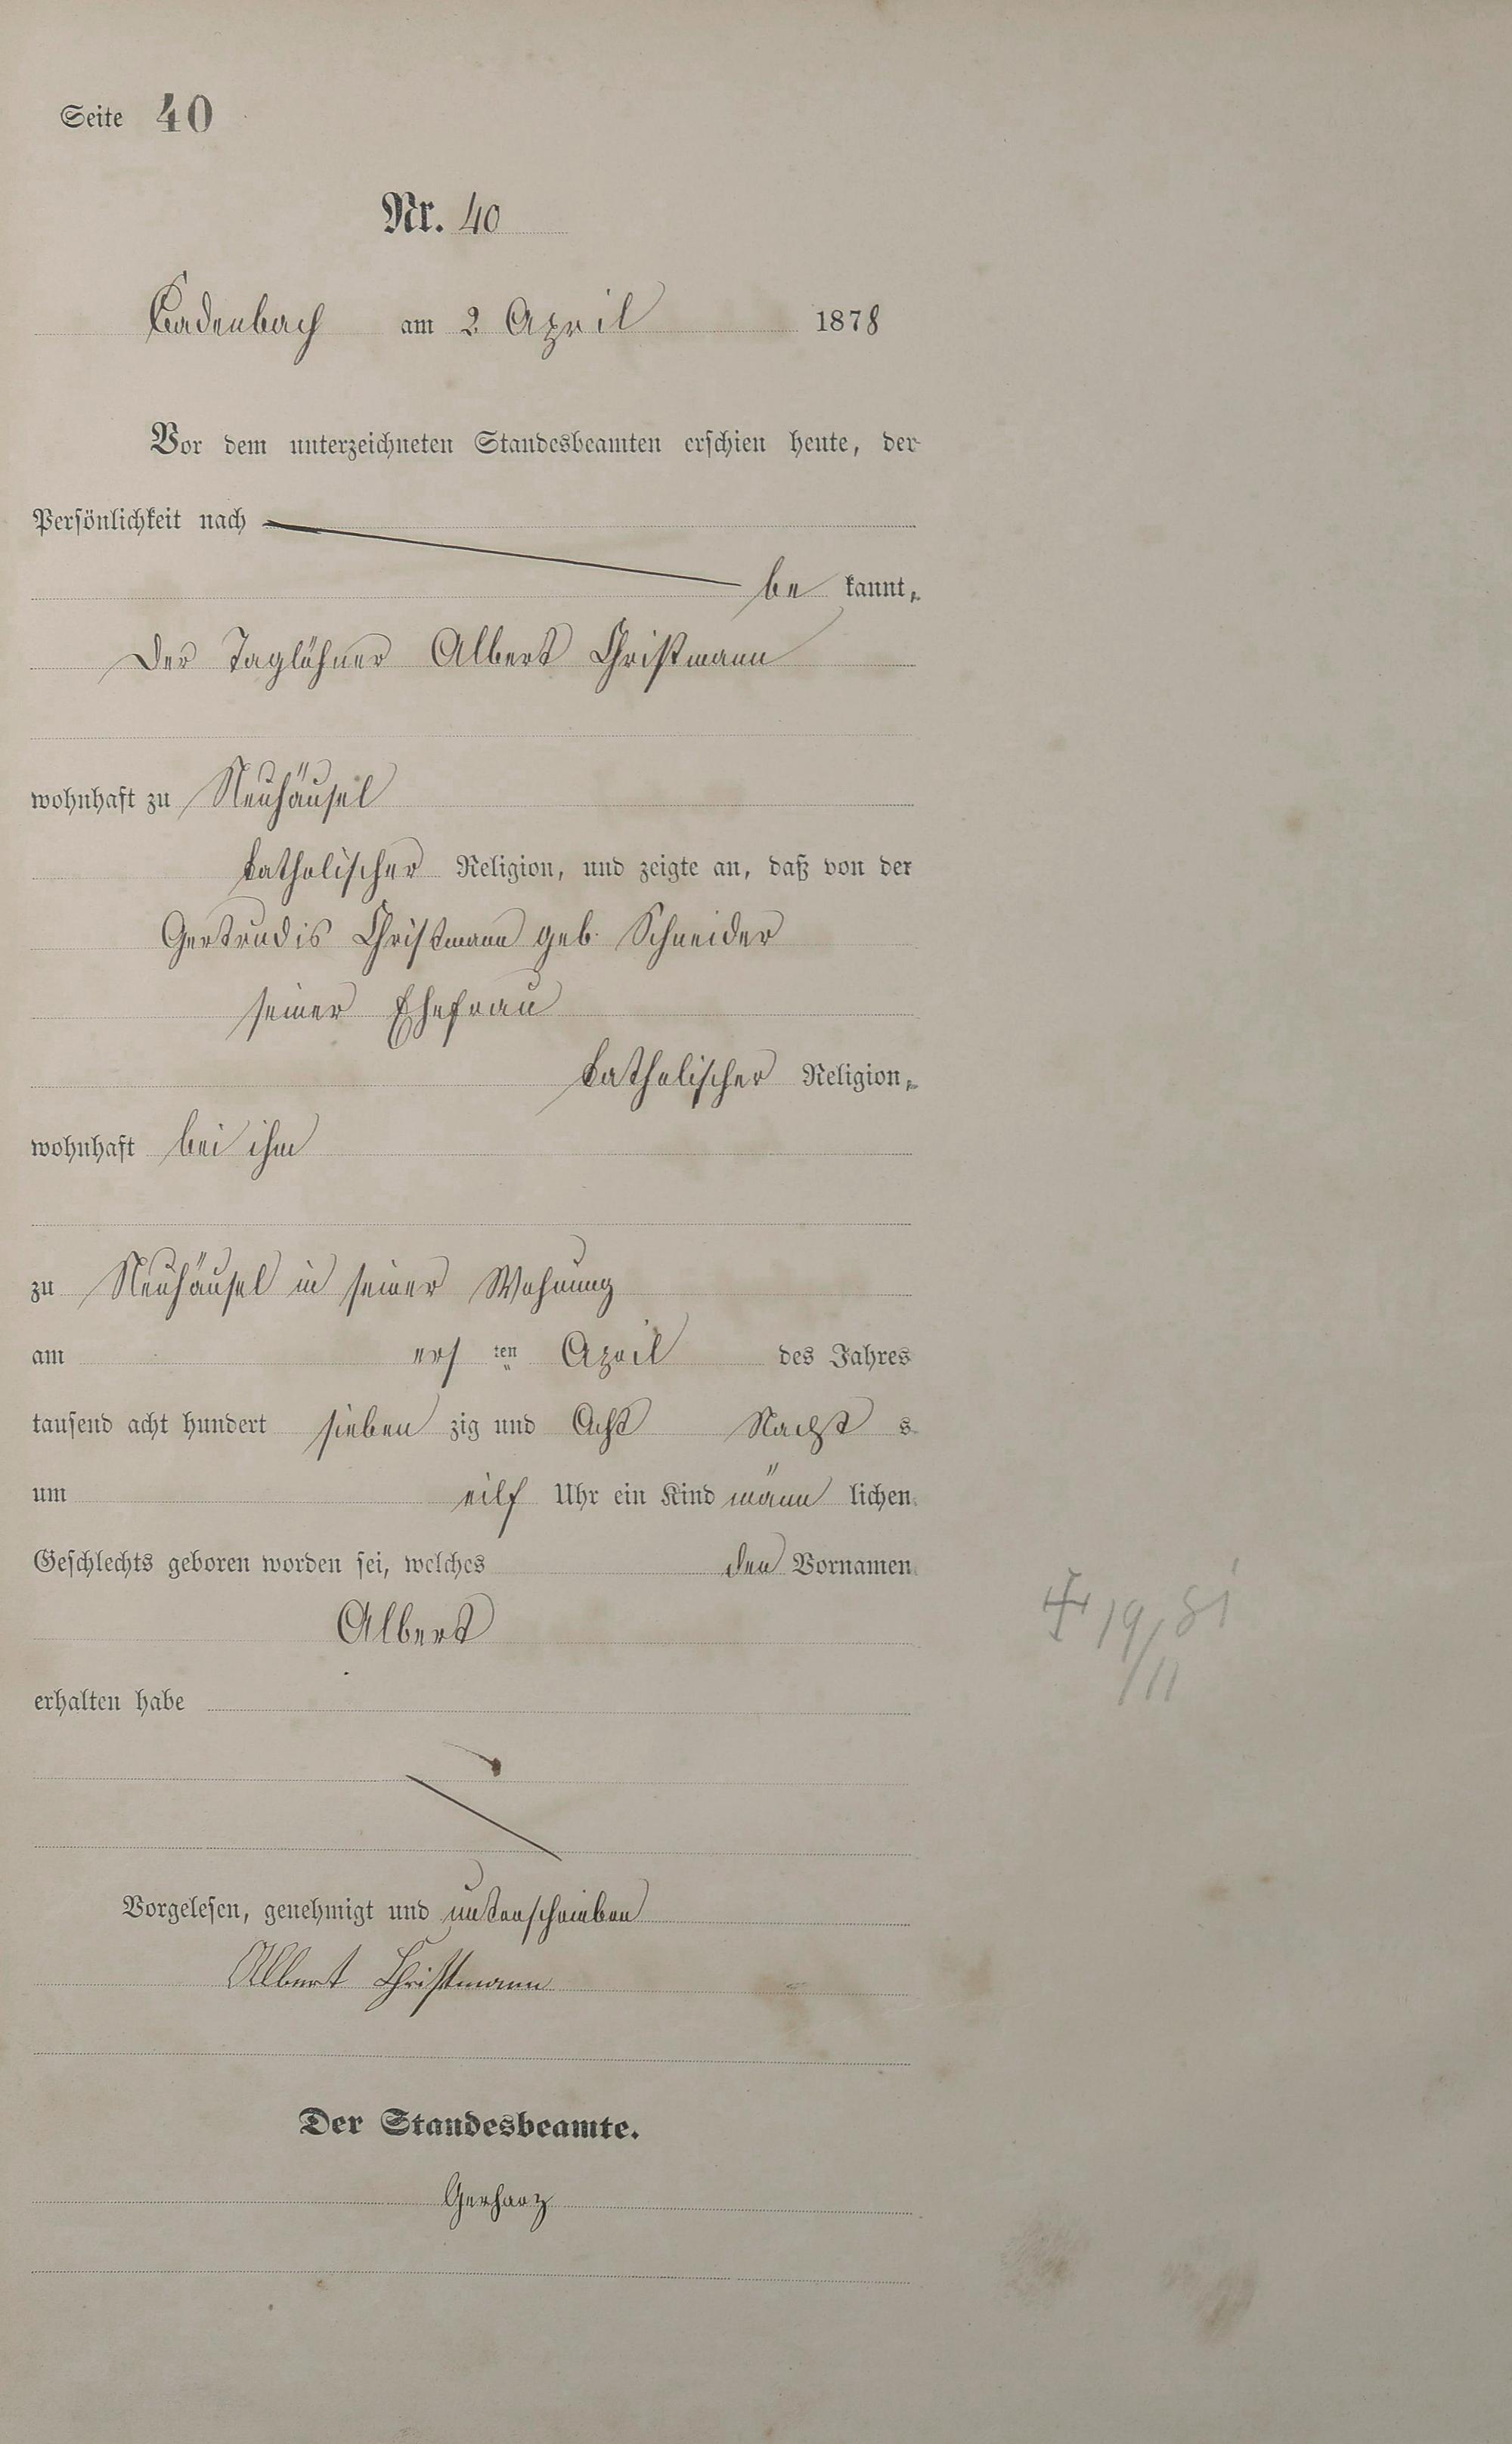 Seite 40
Nr. 40
Cadenbach am 2 April 1878
Vor dem unterzeichneten Standesbeamten erschien heute, der
Persönlichkeit nach
be kannt,
Der Taglöhner Albert Christmann
wohnhaft zu Neuhäusel
katholischer Religion, und zeigte an, daß von der
Gertrudis Christmann geb. Schneider
seiner Ehefrau
katholischer Religion,
wohnhaft bei ihm
zu Neuhäusel in seiner Wohnung
am ers ten April des Jahres
tausend acht hundert sieben zig und Acht Nacht s
um eilf Uhr ein Kind männ lichen
Geschlechts geboren worden sei, welches den Vornamen
Albert
erhalten habe
✝ 19/11 81
Vorgelesen, genehmigt und unterschrieben
Albert Christmann
Der Standesbeamte.
Gerharz